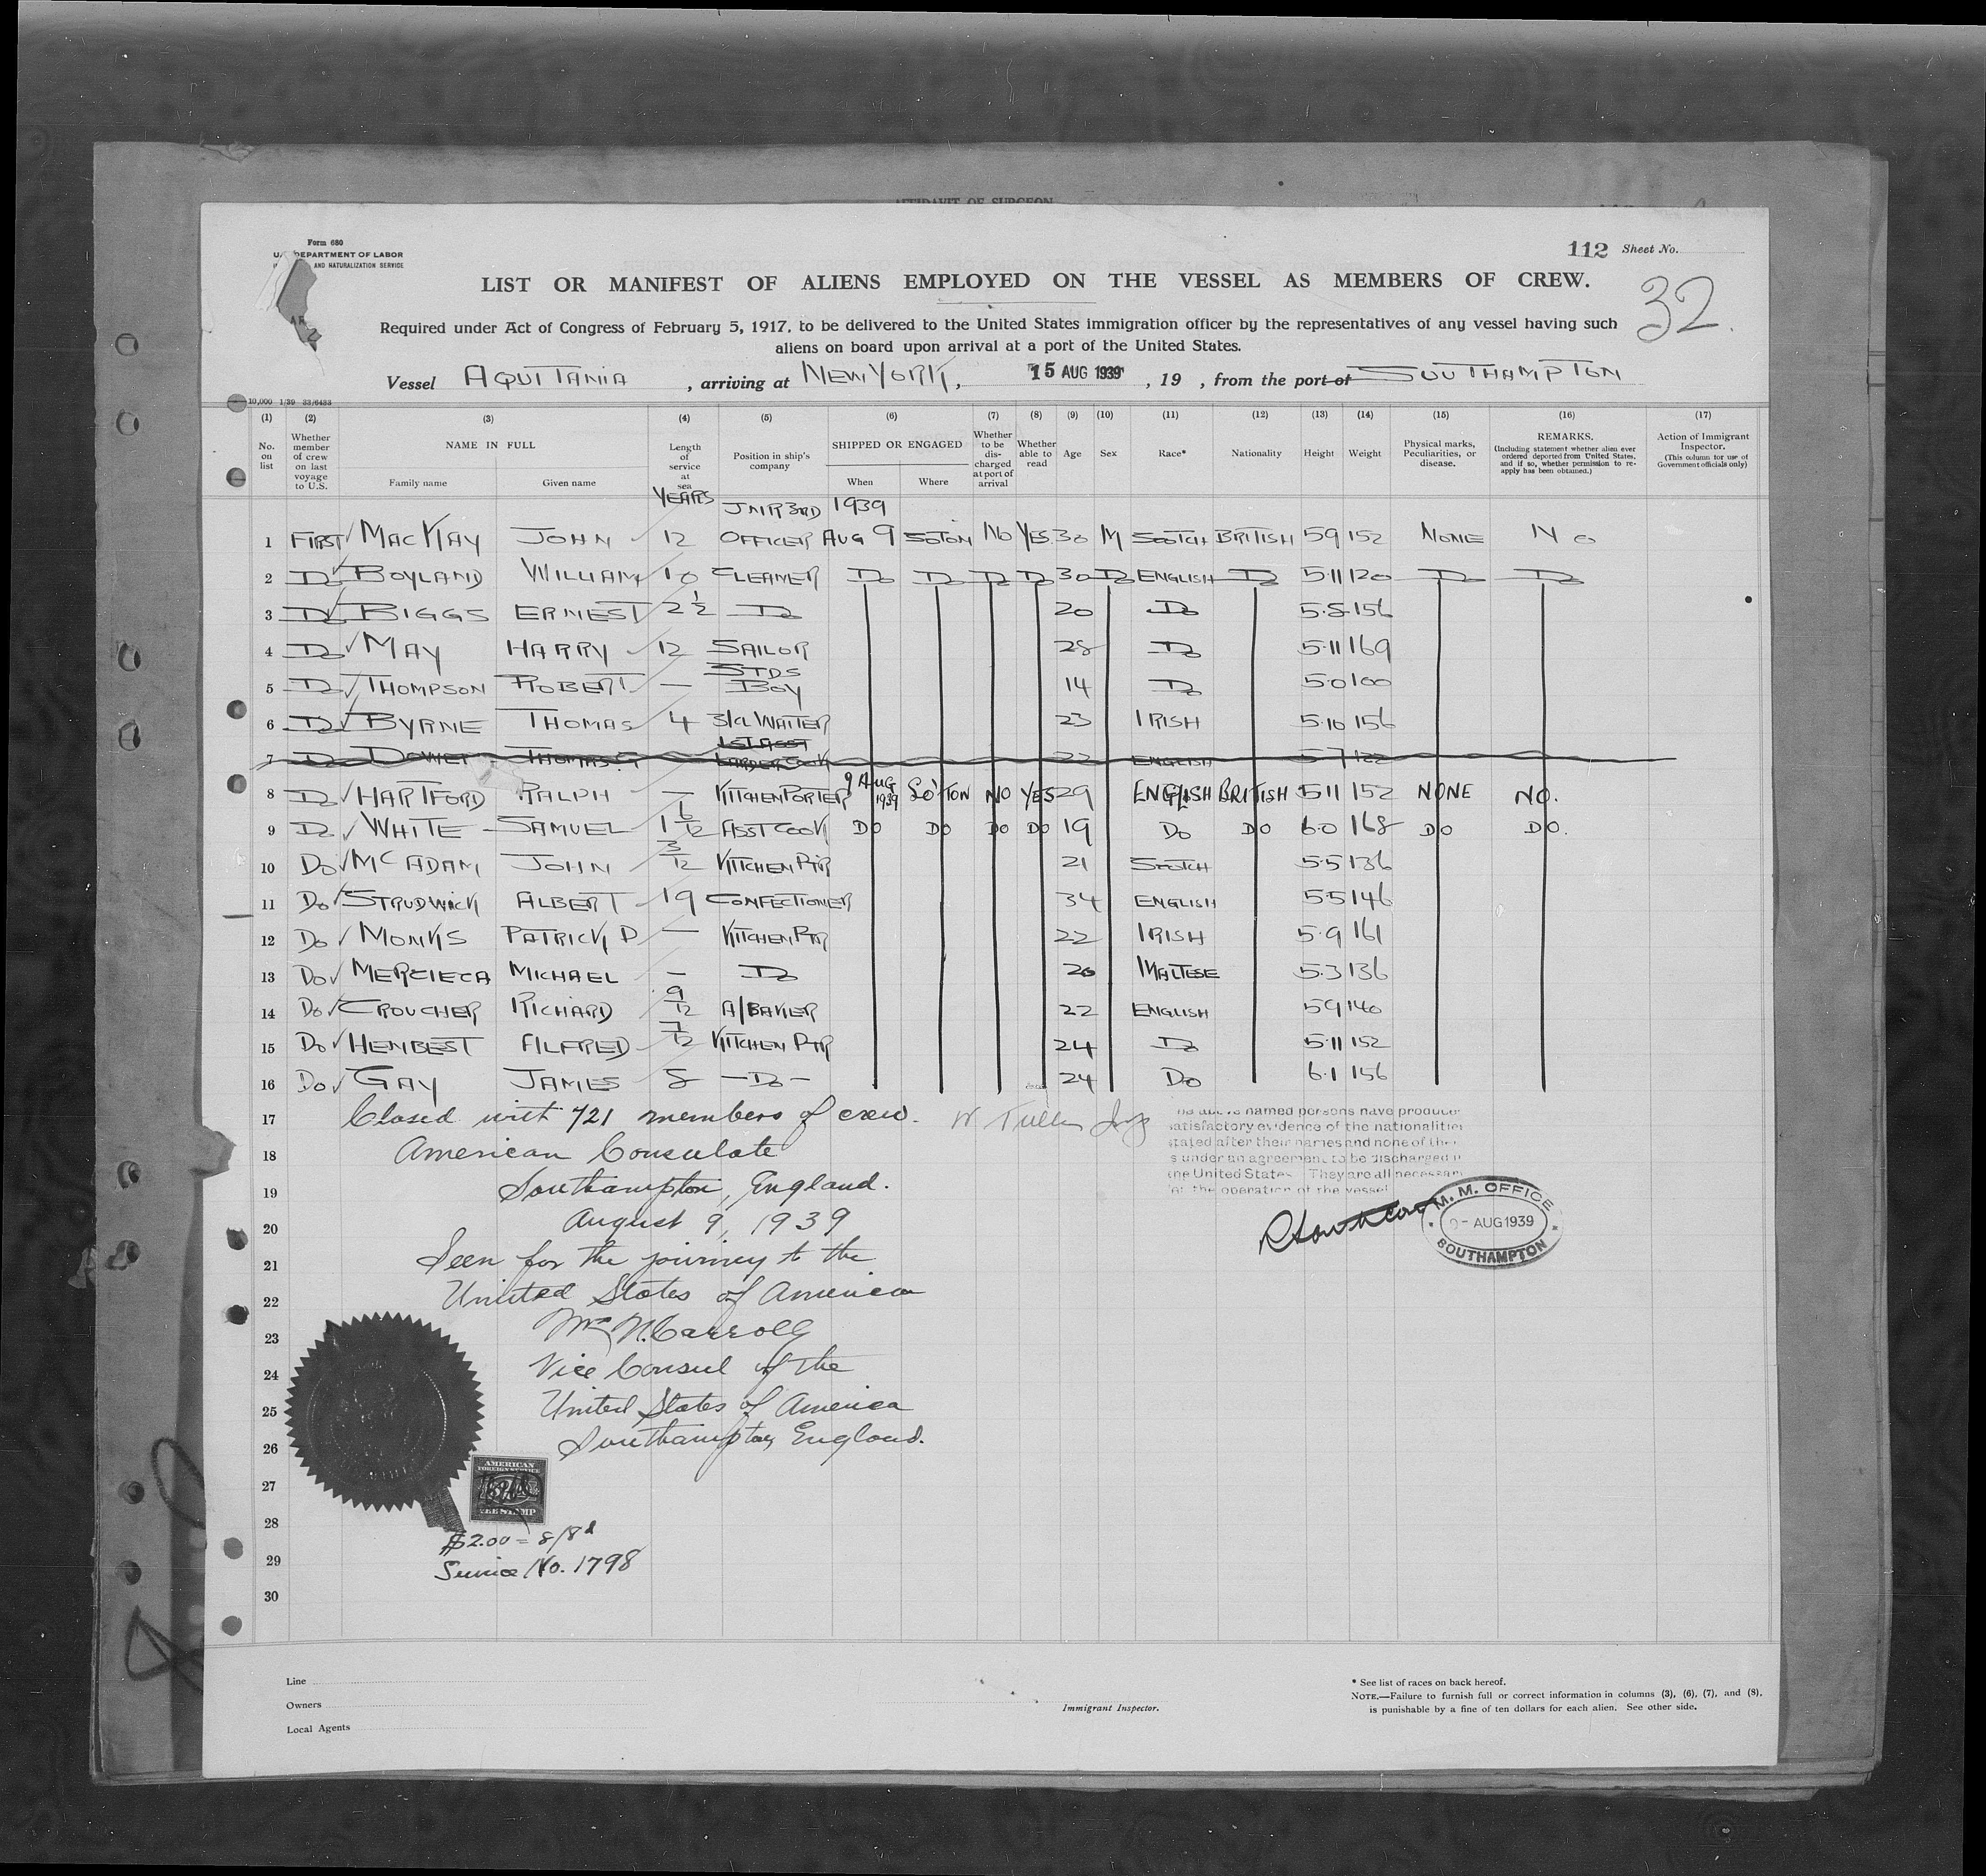 AFFIDAVIT OF SURGEON
Form 680
DEPARTMENT OF LABOR
AND NATURALIZATION SERVICE
112 Sheet No.
32
LIST OR MANIFEST OF ALIENS EMPLOYED ON THE VESSEL AS MEMBERS OF CREW.
Required under Act of Congress of February 5, 1917, to be delivered to the United States immigration officer by the representatives of any vessel having such
aliens on board upon arrival at a port of the United States.
Vessel AQUITANIA, arriving at NEW YORK, 15 AUG 1939, 19 , from the port of SOUTHAMPTON
10,000 1/39 33/6433
(1) (2) (3) (4) (5) (6) (7) (8) (9) (10) (11) (12) (13) (14) (15) (16) (17)
No. on list
Whether member of crew on last voyage to U.S.
NAME IN FULL
Family name Given name
Length of service at sea
Position in ship's company
SHIPPED OR ENGAGED
When Where
Whether to be discharged at port of arrival
Whether able to read
Age
Sex
Race*
Nationality
Height
Weight
Physical marks, Peculiarities, or disease.
REMARKS.
(Including statement whether alien ever ordered deported from United States, and if so, whether permission to re-apply has been obtained.)
Action of Immigrant Inspector.
(This column for use of Government officials only)
YEARS JNR 3RD 1939
1 FIRST MACKAY JOHN 12 OFFICER AUG 9 SOTON NO YES 30 M SCOTCH BRITISH 59 152 NONE NO
2 DO BOYLAND WILLIAM 10 CLEANER DO DO DO DO 30 DO ENGLISH DO 5·11 120 DO DO
3 DO BIGGS ERNEST 2½ DO 20 DO 5·8 156
4 DO MAY HARRY 12 SAILOR 28 DO 5·11 169
5 DO THOMPSON ROBERT — STDS BOY 14 DO 5·0 100
6 DO BYRNE THOMAS 4 3/CL WAITER 23 IRISH 5·10 156
7 DO THOMAS G 1ST ASST LARDER COOK 22 ENGLISH 57 122
8 DO HARTFORD RALPH — KITCHEN PORTER 9 AUG 1939 SO'TON NO YES 29 ENGLISH BRITISH 511 152 NONE NO.
9 DO WHITE SAMUEL 1 6/12 ASST COOK DO DO DO DO 19 DO DO 6·0 168 DO DO.
10 DO McADAM JOHN 3/12 KITCHEN PTR 21 SCOTCH 5·5 136
11 DO STRUDWICK ALBERT 19 CONFECTIONER 34 ENGLISH 5·5 146
12 DO MONKS PATRICK P — KITCHEN PTR 22 IRISH 5·9 161
13 DO MERCIECA MICHAEL — DO 20 MALTESE 5·3 136
14 DO CROUCHER RICHARD 9/12 A/BAKER 22 ENGLISH 59 140
15 DO HENBEST ALFRED 7/12 KITCHEN PTR 24 DO 5·11 152
16 DO GAY JAMES 8 —DO— 24 DO 6·1 156
17 Closed with 721 members of crew.
18 American Consulate
19 Southampton, England.
20 August 9, 1939
21 Seen for the journey to the
22 United States of America
23 Wm N. Carroll
24 Vice Consul of the
25 United States of America
26 Southampton, England.
27
28
29
30
above named persons have produced
satisfactory evidence of the nationalities
stated after their names and none of them
is under an agreement to be discharged in
the United States. They are all necessary
for the operation of the vessel
M. M. OFFICE
9 - AUG 1939
SOUTHAMPTON
AMERICAN
FOREIGN SERVICE
FEE STAMP
$2.00 = 8/8d
Service No. 1798
Line
Owners
Local Agents
Immigrant Inspector.
* See list of races on back hereof.
NOTE.—Failure to furnish full or correct information in columns (3), (6), (7), and (8),
is punishable by a fine of ten dollars for each alien. See other side.